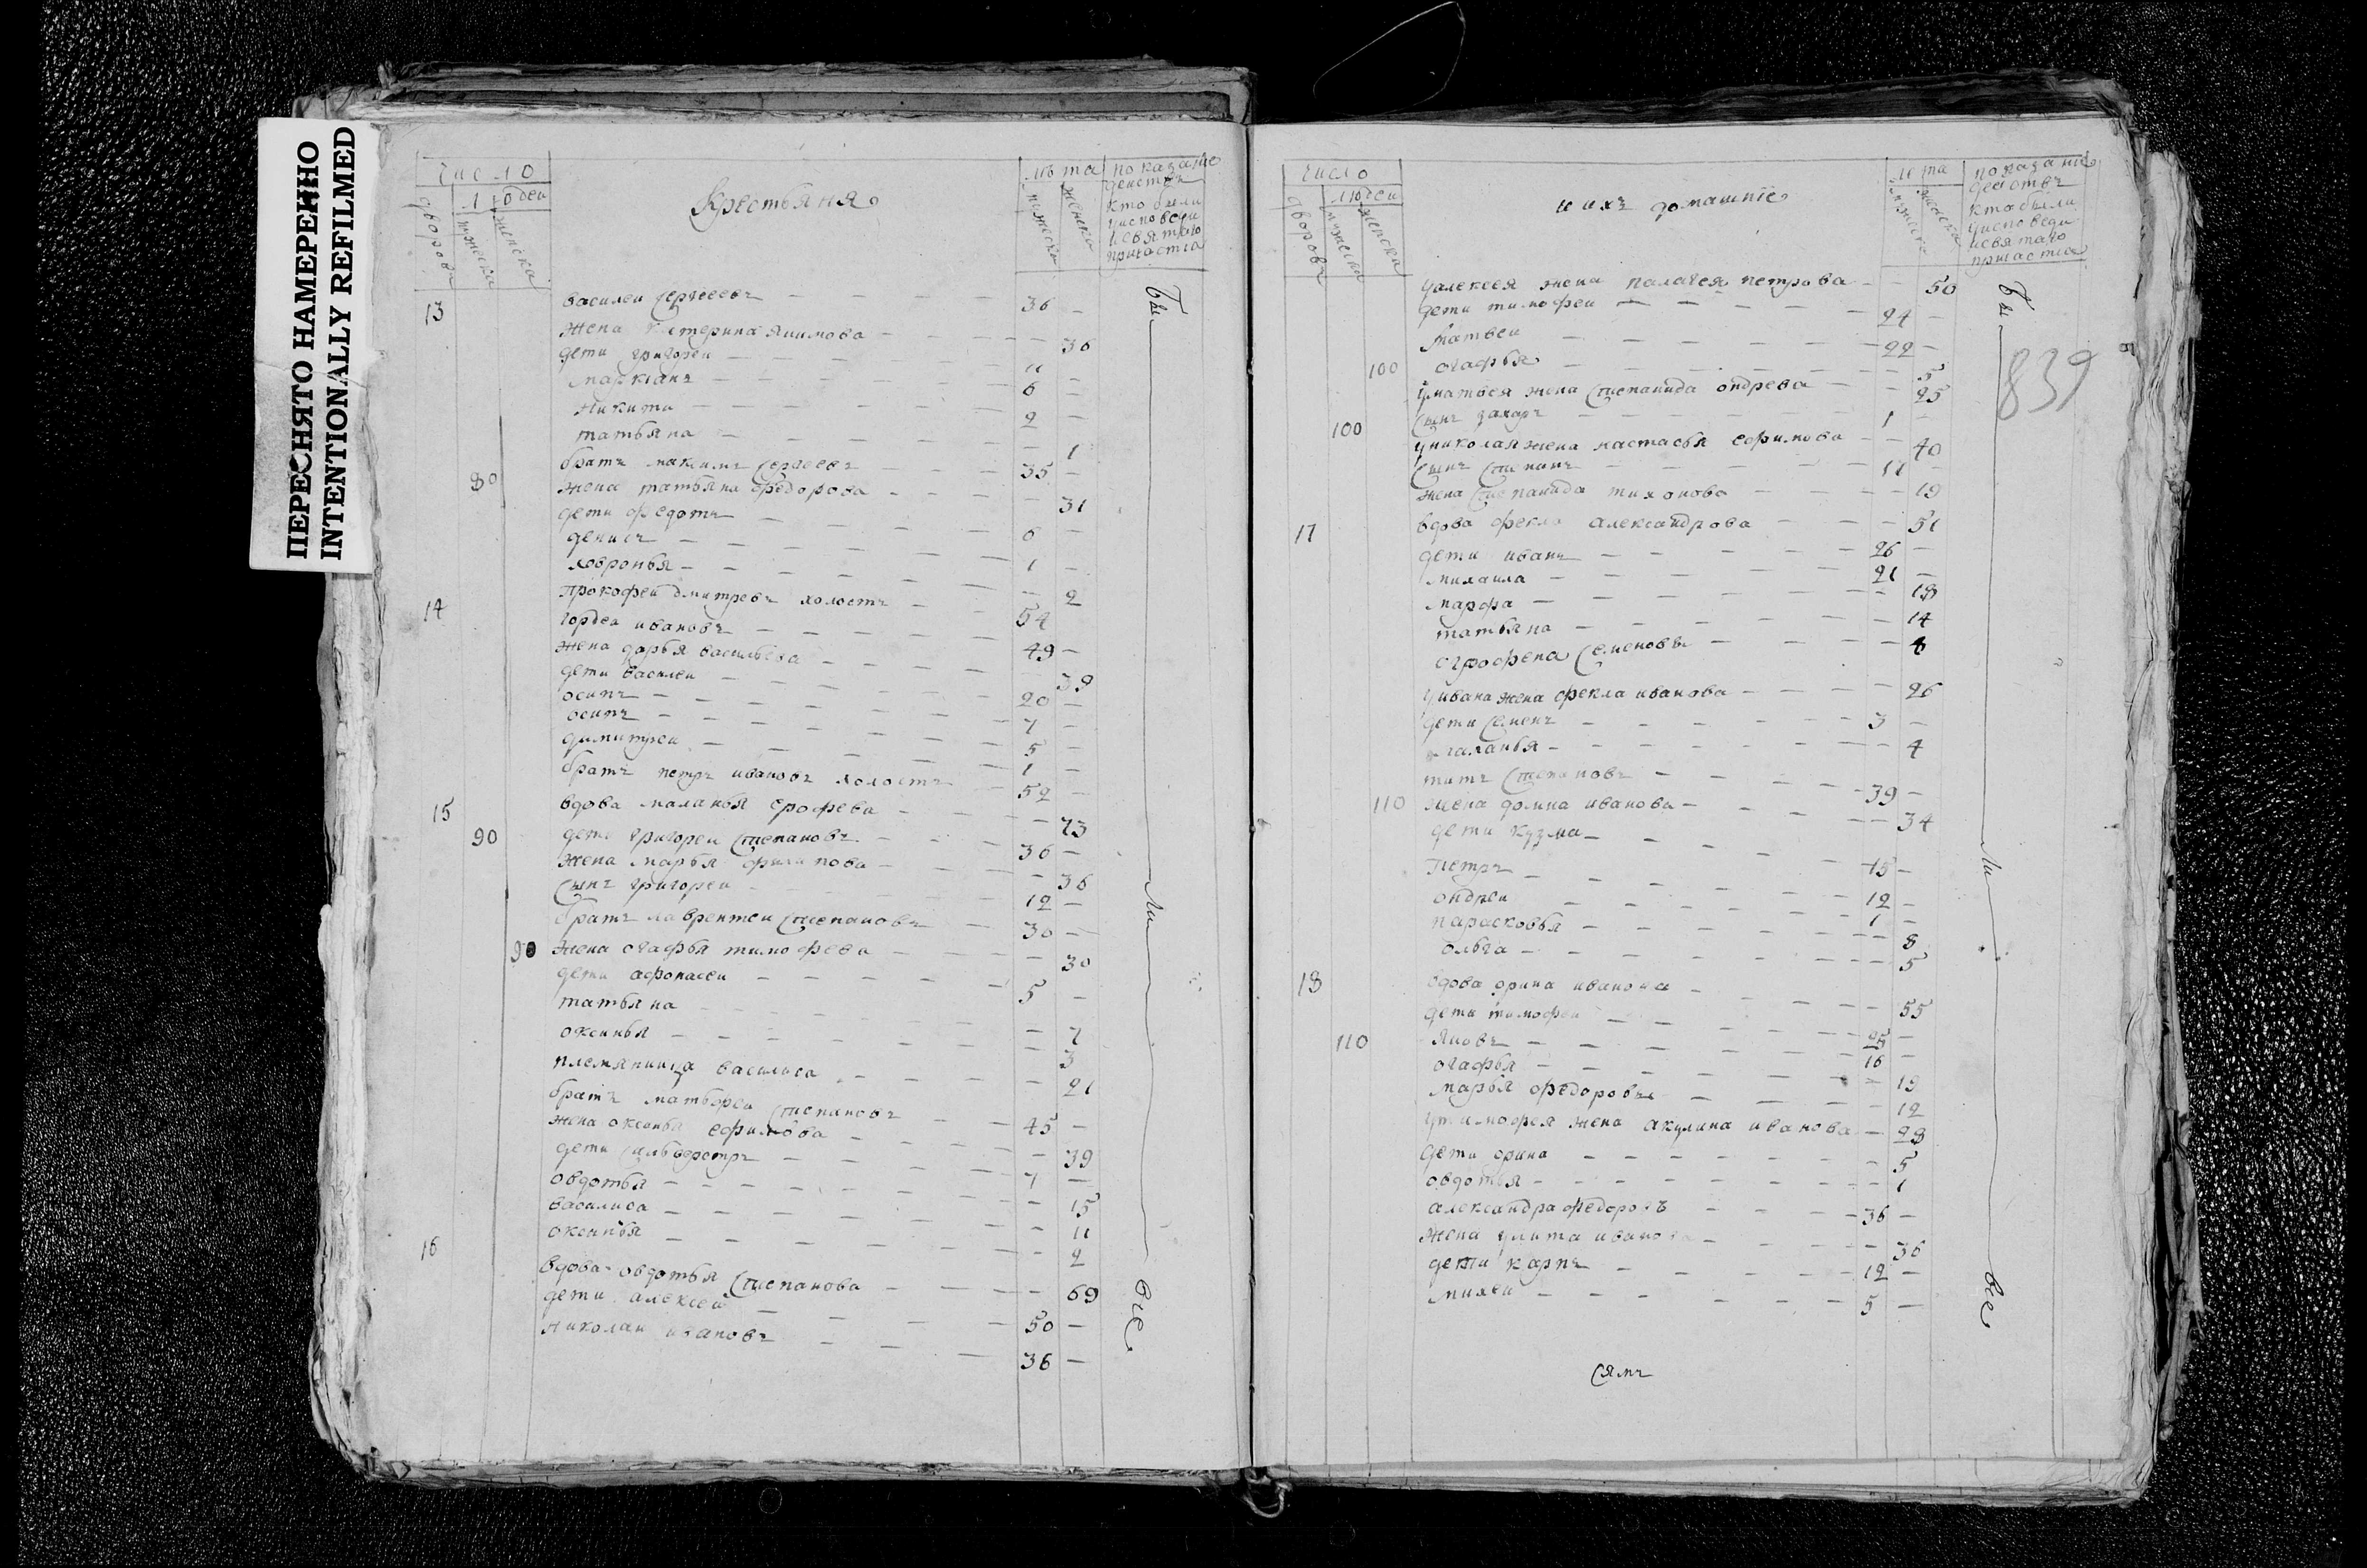 ПЕРЕСНЯТО НАМЕРЕННО
INTENTIONALLY REFILMED
число
людеи
дворовъ
мужеска
женска
Крестьяня
лѣта
мужеска
женска
показание
деиствъ
кто были
уисповеди
исвятаго
причастиа
13 василеи сергѣевъ — 36 —
жена катерина якимова — 36
дети григореи — 11 —
маркианъ — 6 —
никита — 2 —
татьяна — 1
братъ максимъ сергѣевъ — 35 —
80 жена татьяна федорова — 31
дети федотъ — 6 —
денисъ — 1 —
ховронья — 2
14 прокофеи дмитревъ холостъ — 54
гордеа ивановъ — 49 —
жена дарья васильева — 39
дети василеи — 20 —
осипъ — 7 —
осипъ — 5 —
димитреи — 1 —
братъ петръ ивановъ холостъ — 52 —
15 вдова маланья ерофева — 73
90 дети григореи степановъ — 36 —
жена марья филипова — 36
сынъ григореи — 12 —
братъ лаврентеи степановъ — 30 —
90 жена огафья тимофева — 30
дети афонасеи — 5 —
татьяна — 7
оксинья — 3
племянница василиса — 21
братъ матвѣеи степановъ — 45 —
жена оксинья ефимова — 39
дети сильверстръ — 7 —
овдотья — 15
василиса — 11
оксинья — 2
16 вдова овдотья степанова — 69
дети алексеи — 50 —
николаи ивановъ — 36 —
Бы
ли
все
число
людеи
дворовъ
мужеска
женска
и ихъ домашние
лета
мужеска
женска
показание
деиствъ
кто были
уисповеди
исвятаго
причастиа
839
уалексея жена палагея петрова — 50
дети тимофеи — 24 —
матвеи — 22 —
100 огафья — 5
уматвея жена степанида ондрева — 25
100 сынъ захаръ — 1 —
униколая жена настасья ефимова — 40
сынъ степанъ — 17 —
жена степанида тихонова — 19
17 вдова фекла александрова — 51
дети иванъ — 26 —
михаила — 21 —
марфа — 18
татьяна — 14
огрофена семеновы — 8
уивана жена фекла иванова — 26
дети семенъ — 3 —
маланья — 4
титъ степановъ — 39 —
110 жена домна иванова — 34
дети кузма — 15 —
петръ — 12 —
ондреи — 1 —
парасковья — 8
ольга — 5
18 вдова орина иванова — 55
дети тимофеи — 25 —
110 яковъ — 16 —
огафья — 19
марья федоровы — 12
утимофея жена акулина иванова — 28
дети орина — 5
овдотья — 1
александра федоровъ — 36 —
жена улита иванова — 36
дети карпъ — 12 —
михеи — 5 —
Бы
ли
все
сямъ